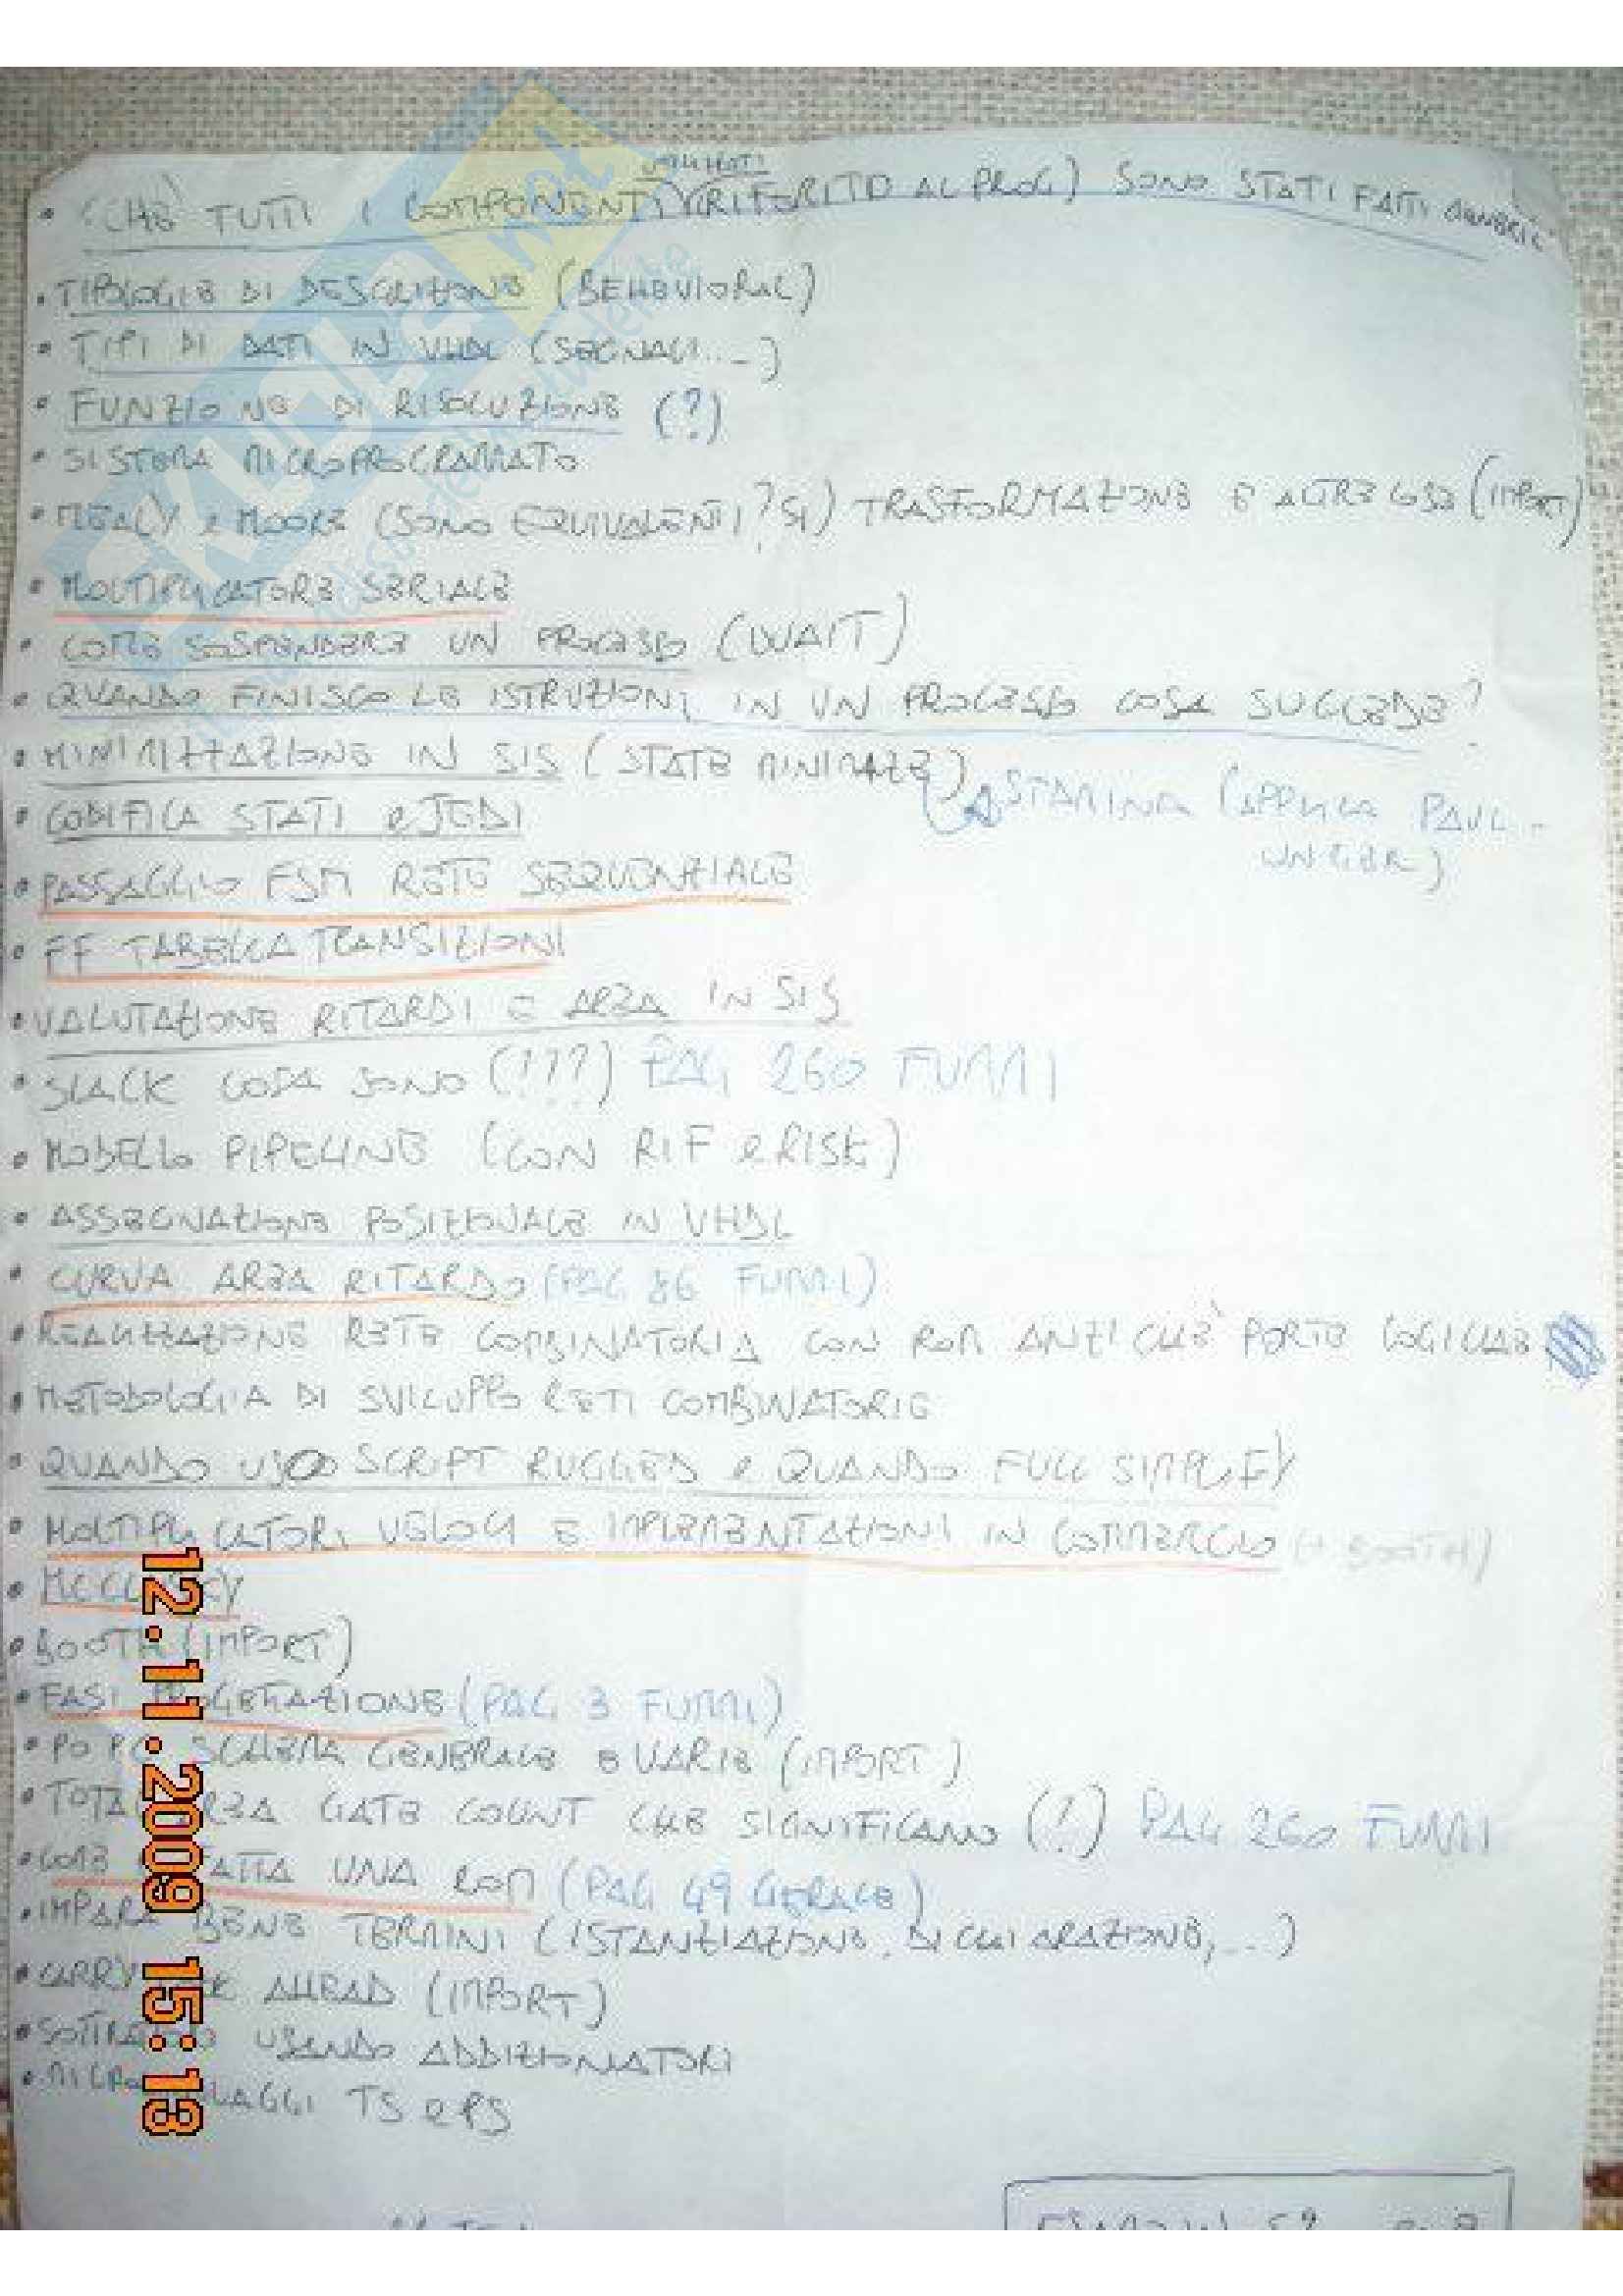 • CHE TUTTI I COMPONENTI (RIFERITO AL PROG) SONO STATI FATTI GENERIC
• TIPOLOGIE DI DESCRIZIONE (BEHEVIORAL)
• TIPI DI DATI IN VHDL (SEGNALI...)
• FUNZIONE DI RISOLUZIONE (?)
• SISTEMA MICROPROGRAMMATO
• MEALY E MOORE (SONO EQUIVALENTI? SI) TRASFORMAZIONE E ALTRE COSE (IMPORT)
• MOLTIPLICATORE SERIALE
• COME SOSPENDERE UN PROCESSO (WAIT)
• QUANDO FINISCO LE ISTRUZIONI IN UN PROCESSO COSA SUCCEDE?
• MINIMIZZAZIONE IN SIS (STATE MINIMIZE)
STAMINA (APPLICA PAUL-UNGER)
• CODIFICA STATI e JEDI
• PASSAGGIO FSM RETE SEQUENZIALE
• FF TABELLA TRANSIZIONI
• VALUTAZIONE RITARDI E AREA IN SIS
• SLACK COSA SONO (???) PAG 260 FUMMI
• MODELLO PIPELINE (CON RIF e RISE)
• ASSEGNAZIONE POSIZIONALE IN VHDL
• CURVA AREA RITARDO (PAG 86 FUMMI)
• REALIZZAZIONE RETE COMBINATORIA CON ROM ANZICHE' PORTE LOGICHE
• METODOLOGIA DI SVILUPPO RETI COMBINATORIE
• QUANDO USO SCRIPT RUGGED e QUANDO FULL SIMPLIFY
• MOLTIPLICATORI VELOCI E IMPLEMENTAZIONI IN COMMERCIO (+ BOOTH)
• MCCLUSKEY
• BOOTH (IMPORT)
• FASI PROGETTAZIONE (PAG 3 FUMMI)
• PO PC SCHEMA GENERALE E VARIE (IMPORT)
• TOTAL AREA GATE COUNT CHE SIGNIFICANO (!) PAG 260 FUMMI
• COME FATTA UNA ROM (PAG 49 GERACE)
• IMPARA BENE TERMINI (ISTANZIAZIONE, DICHIARAZIONE, ...)
• CARRY AHEAD (IMPORT)
• USANDO ADDIZIONATORI
• TS e PS
12.11.2009 15:13
SKUOLA.net